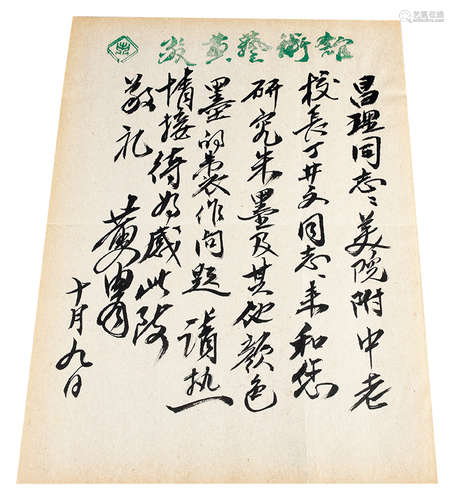 炎黄藝術館
昌理同志：美院附中老
校長丁井文同志来和您
研究朱墨及其他颜色
墨的製作问题 请热
情接待为感此致
敬礼
黄胄
十月九日